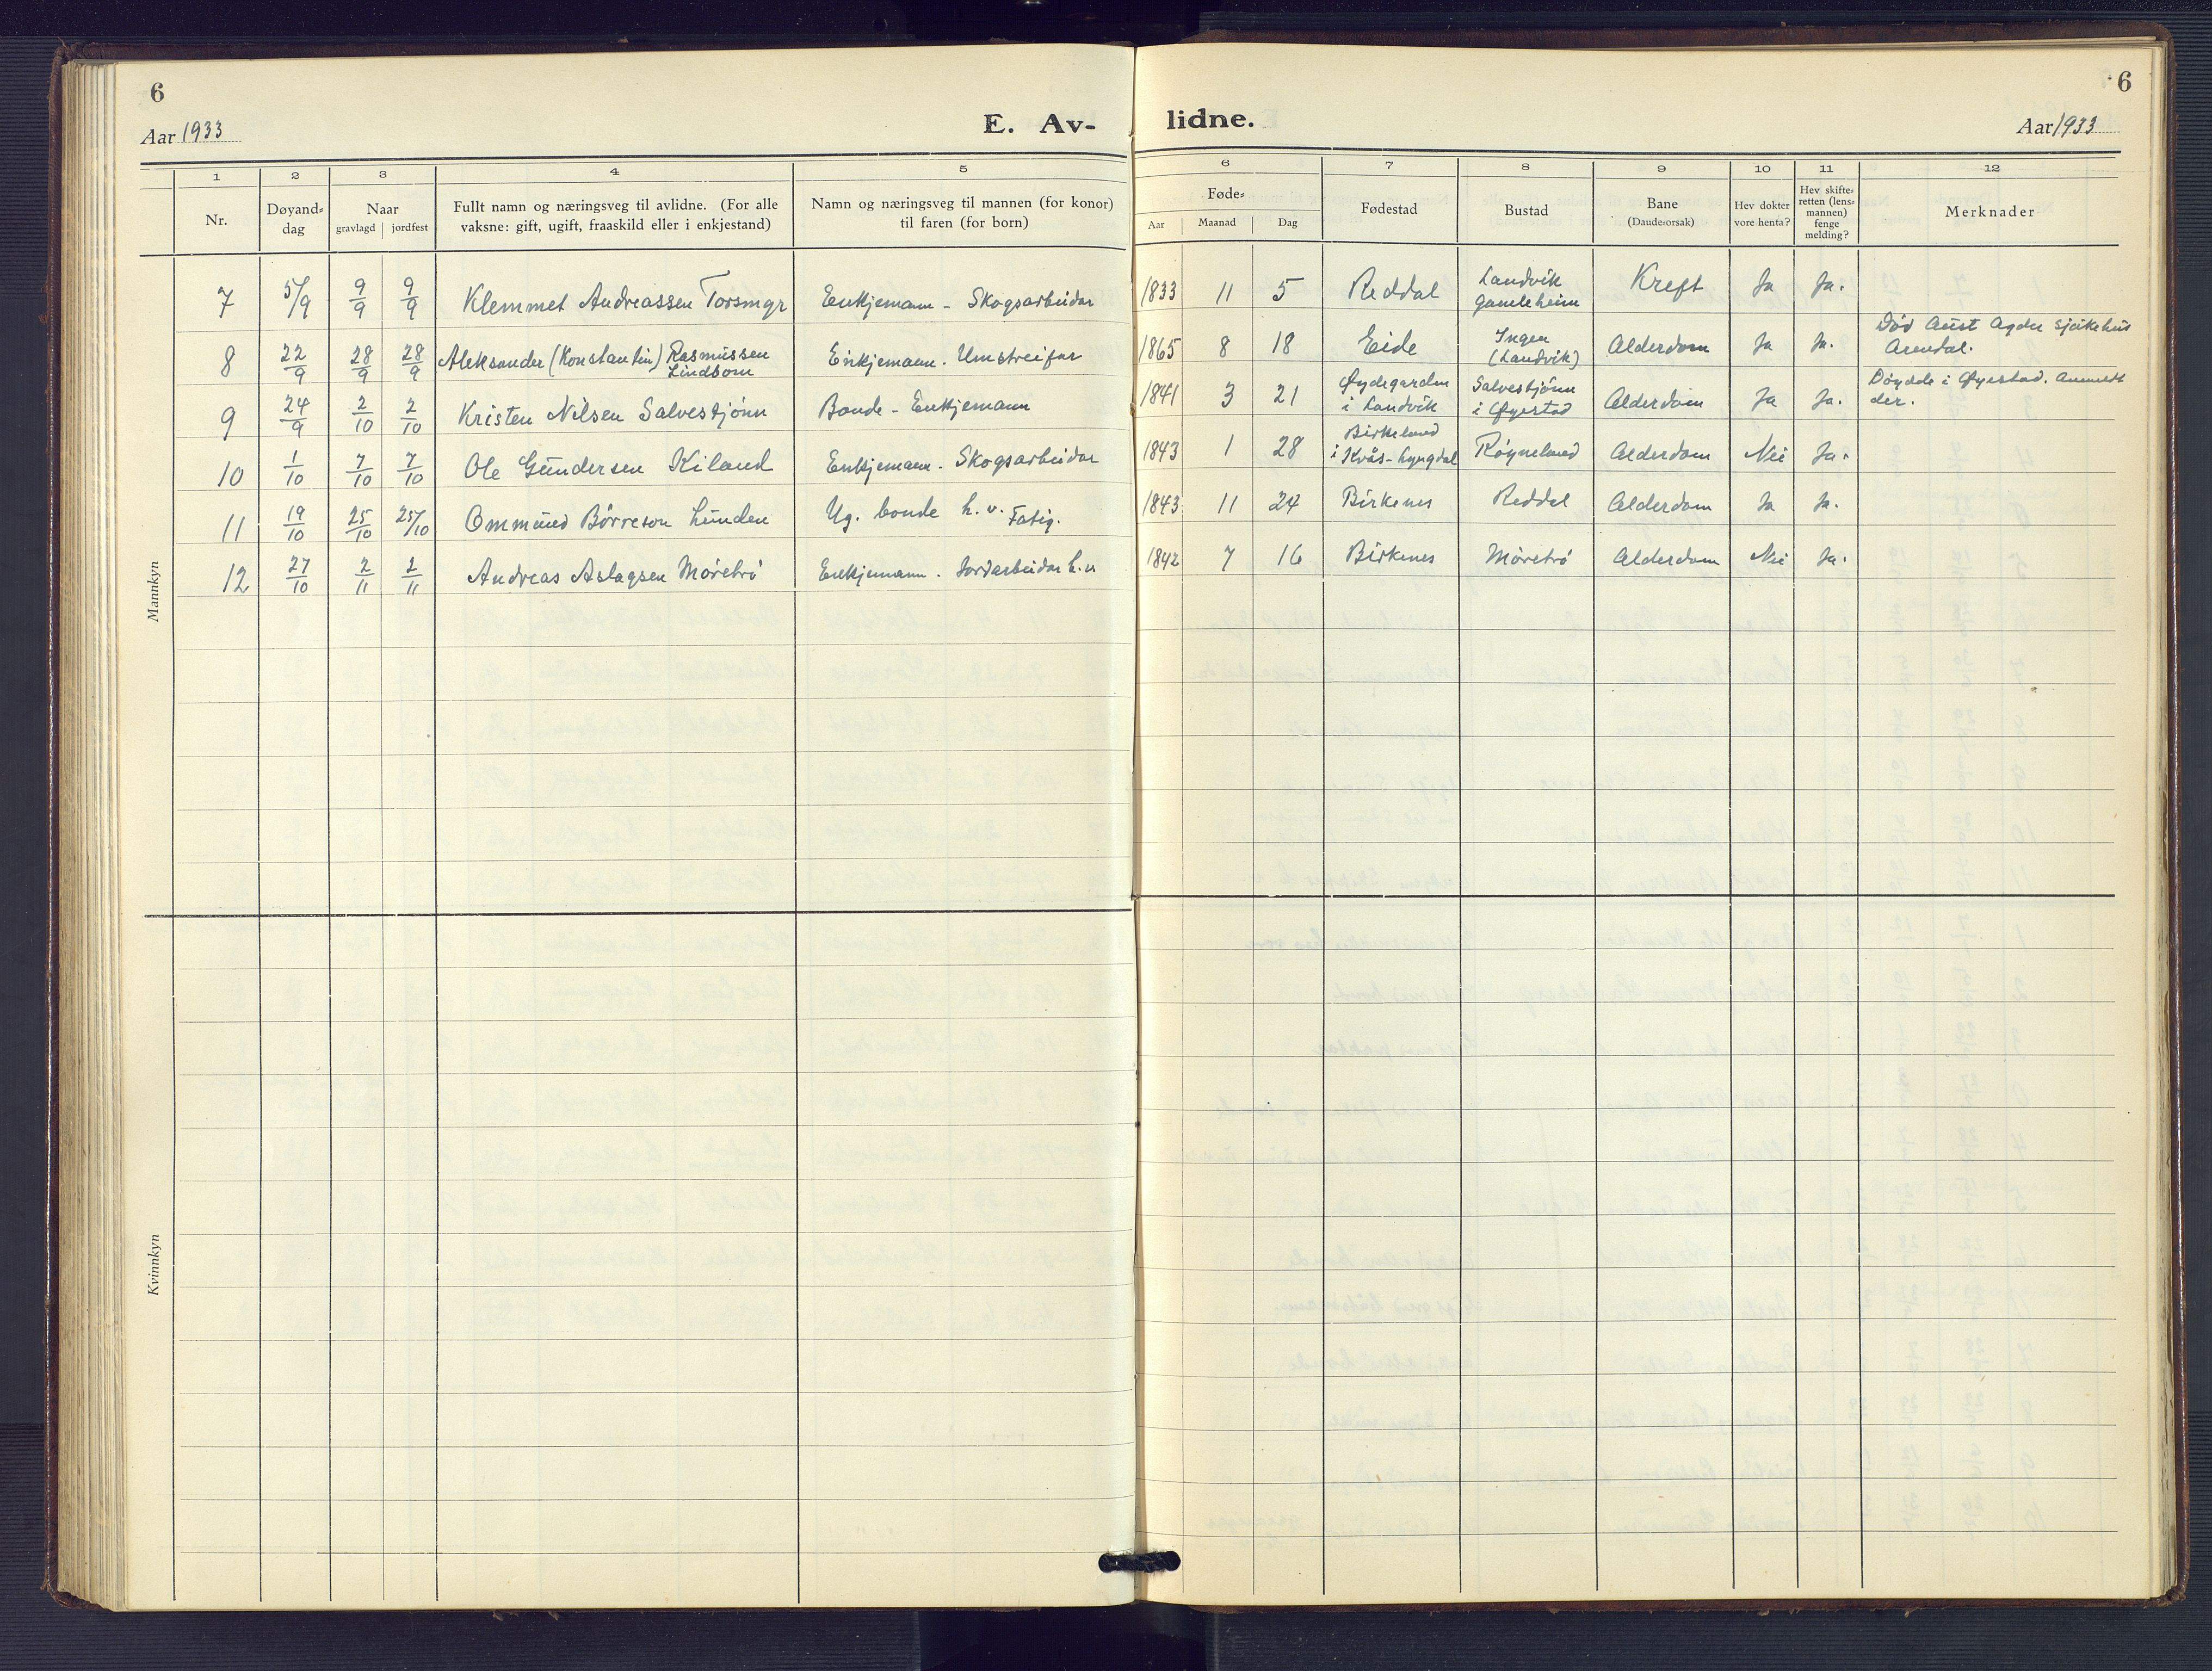 6
Aar 1933
E. Av-
lidne.
6
Aar 1933
1 2 3 4 5 6 7 8 9 10 11 12
Nr.
Døyand-
dag
Naar
gravlagd jordfest
Fullt namn og næringsveg til avlidne. (For alle
vaksne: gift, ugift, fraaskild eller i enkjestand)
Namn og næringsveg til mannen (for konor)
til faren (for born)
Føde-
Aar Maanad Dag
Fødestad
Bustad
Bane
(Daude-orsak)
Hev dokter
vore henta?
Hev skifte-
retten (lens-
mannen)
fenge
melding?
Merknader
Mannkyn
7 5/9 9/9 9/9 Klemmet Andreassen Torsmyr Enkjemann - Skogsarbeidar 1833 11 5 Reddal Landvik gamleheim Kreft Ja Ja.
8 22/9 28/9 28/9 Aleksander (Konstantin) Rasmussen Lindbom Enkjemann. Umstreifar 1865 8 18 Eide Ingen (Landvik) Alderdom Ja Ja. Død Aust Agder sjukehus Arendal.
9 24/9 2/10 2/10 Kristen Nilsen Salvestjönn Bonde - Enkjemann 1841 3 21 Øydegarden i Landvik Salvestjönn i Øyestad Alderdom Ja Ja. Döydde i Øyestad. Anmeldt der.
10 1/10 7/10 7/10 Ole Gundersen Kiland Enkjemann. Skogsarbeidar 1843 1 28 Birkeland i Kvås-Lyngdal Röyneland Alderdom Nei Ja.
11 19/10 25/10 25/10 Ommund Børreson Lunden Ug. bonde h.v. Fatig. 1843 11 24 Birkenes Reddal Alderdom Ja Ja.
12 27/10 2/11 2/11 Andreas Aslagsen Mörebrö Enkjemann. Jordarbeidar h.v 1842 7 16 Birkenes Mörebrö Alderdom Nei Ja.
Kvinnkyn